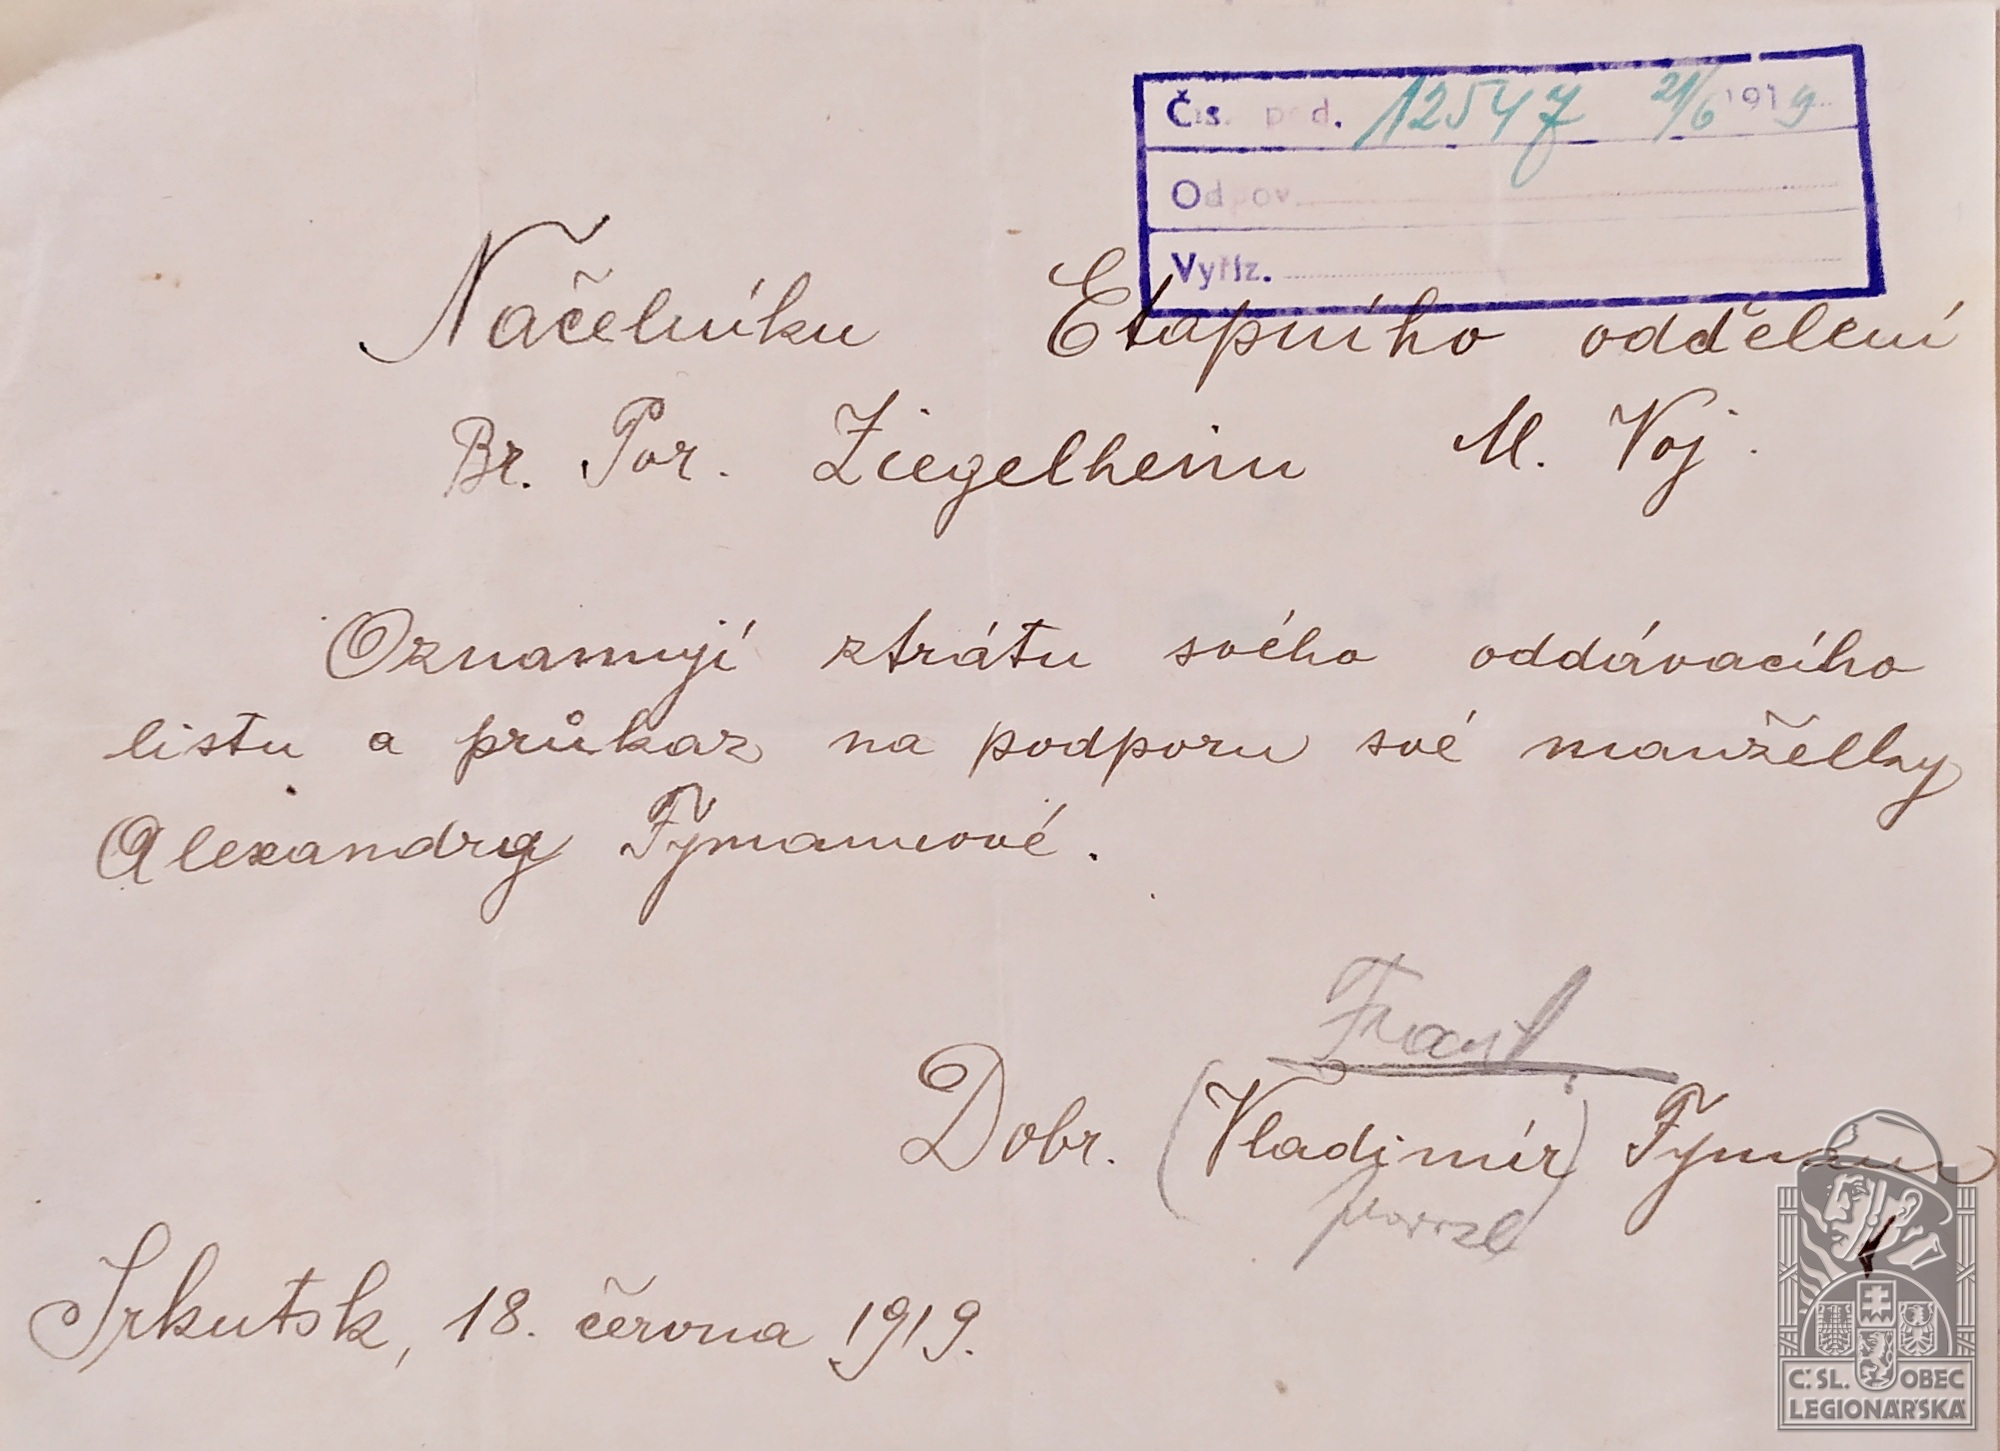 Čís. pod. 12547 21/6 1919
Odpov.
Vyříz.
Náčelníku Etapního oddělení
Br. Por. Ziegelheim M. Voj.
Oznamuji ztrátu svého oddávacího
listu a průkaz na podporu své manželky
Alexandry Tymanové.
Frant.
Dobr. (Vladimír) Tyman
Irkutsk, 18. června 1919.
Č. SL. OBEC
LEGIONÁŘSKÁ